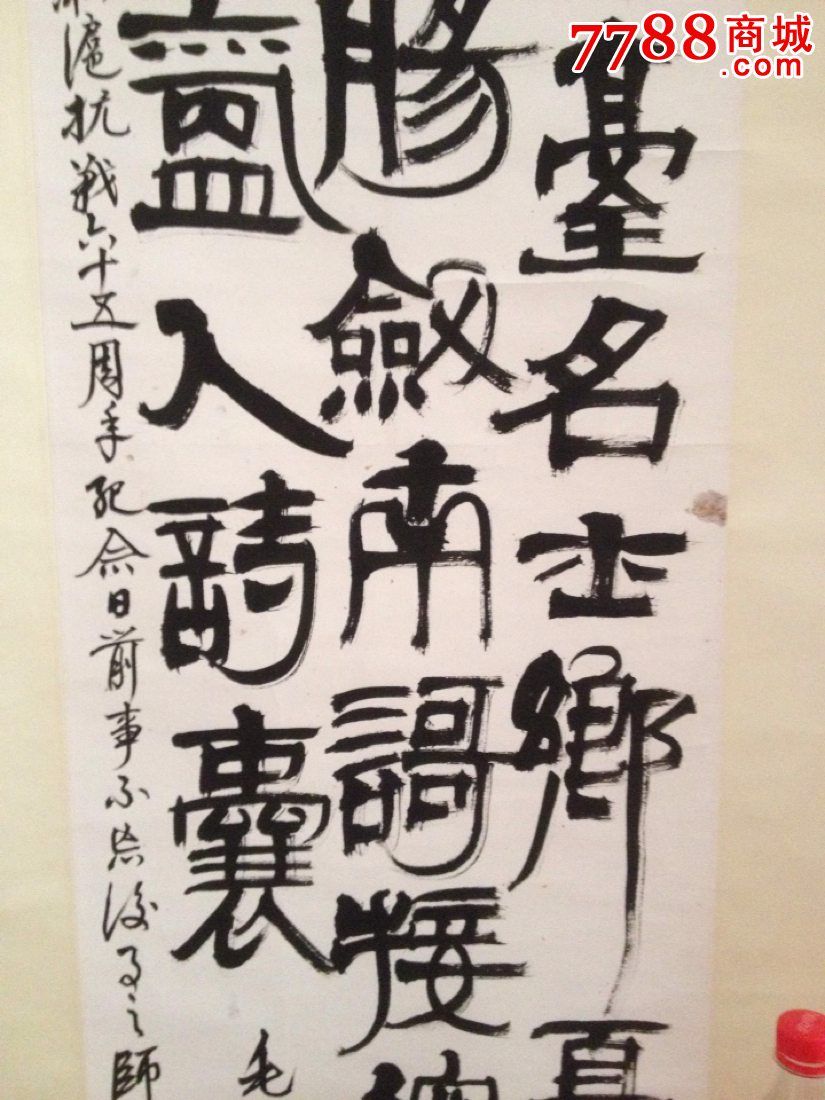 7788商城
.com
臺名士鄉
腸劔南謌接
盡入詩囊
毛
淞滬抗戰六十五周年紀念日前事不忘後事之師